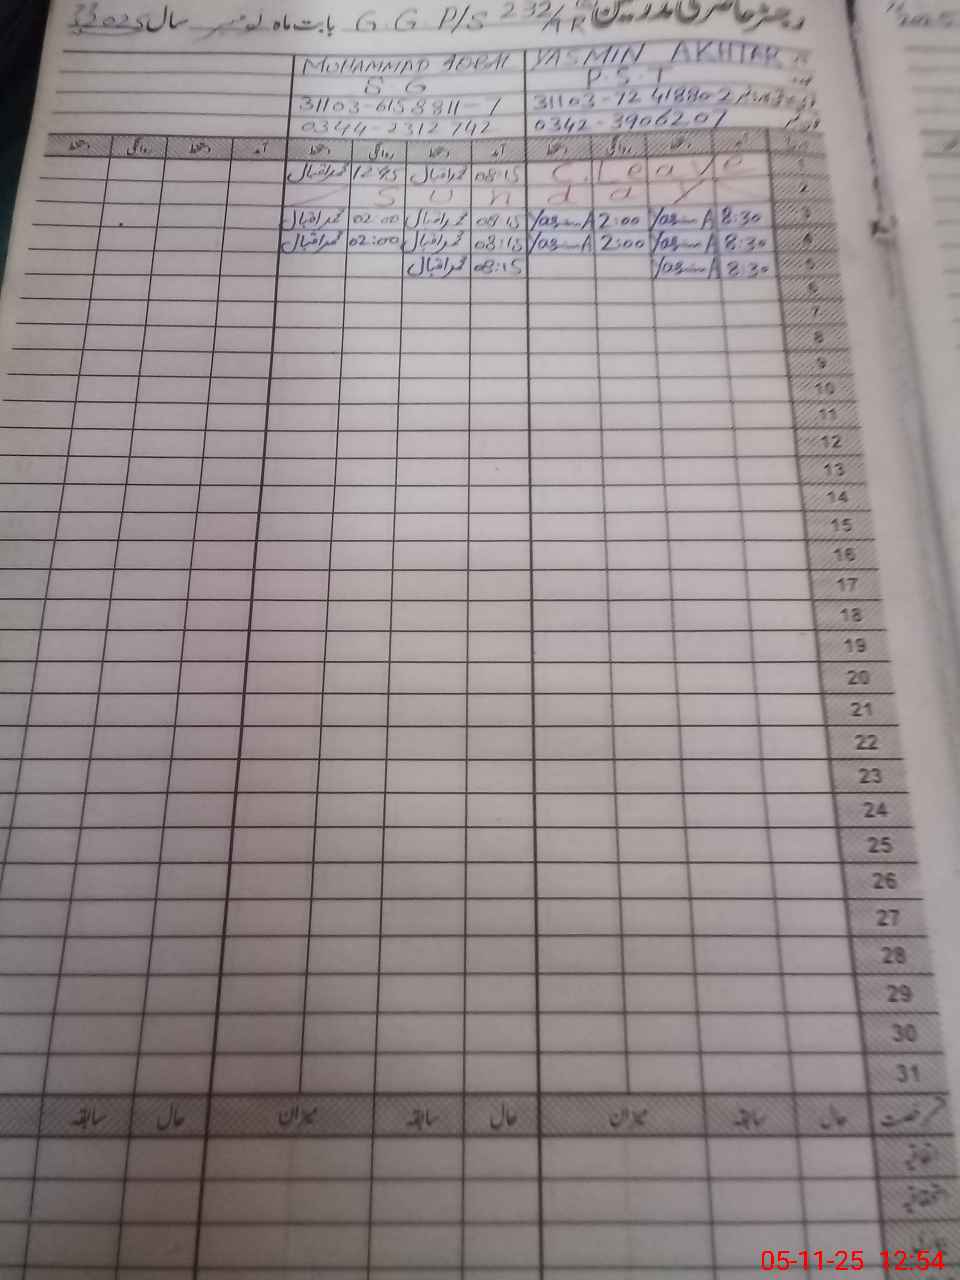 رجسٹر حاضری مدرسین G. G P/S 232/AR بابت ماہ نومبر سال 2025
YASMIN AKHTAR MUHAMMAD IQBAL
P.S.T S G
31103-6158811-1
0342-3906207 0344-2312742
آمد دستخط روانگی دستخط آمد دستخط روانگی دستخط آمد دستخط روانگی دستخط
1 C.Leave 08:15 محمد اقبال 12:45 محمد اقبال
2 Sunday
3 8:30 Yasmin A 2:00 Yasmin A 08:15 محمد اقبال 02:00 محمد اقبال
4 8:30 Yasmin A 2:00 Yasmin A 08:15 محمد اقبال 02:00 محمد اقبال
5 8:30 Yasmin A 08:15 محمد اقبال
6
7
8
9
10
11
12
13
14
15
16
17
18
19
20
21
22
23
24
25
26
27
28
29
30
31
رخصت حال سابقہ میزان حال سابقہ میزان حال سابقہ
اتفاقیہ
استحقاقیہ
05-11-25 12:54